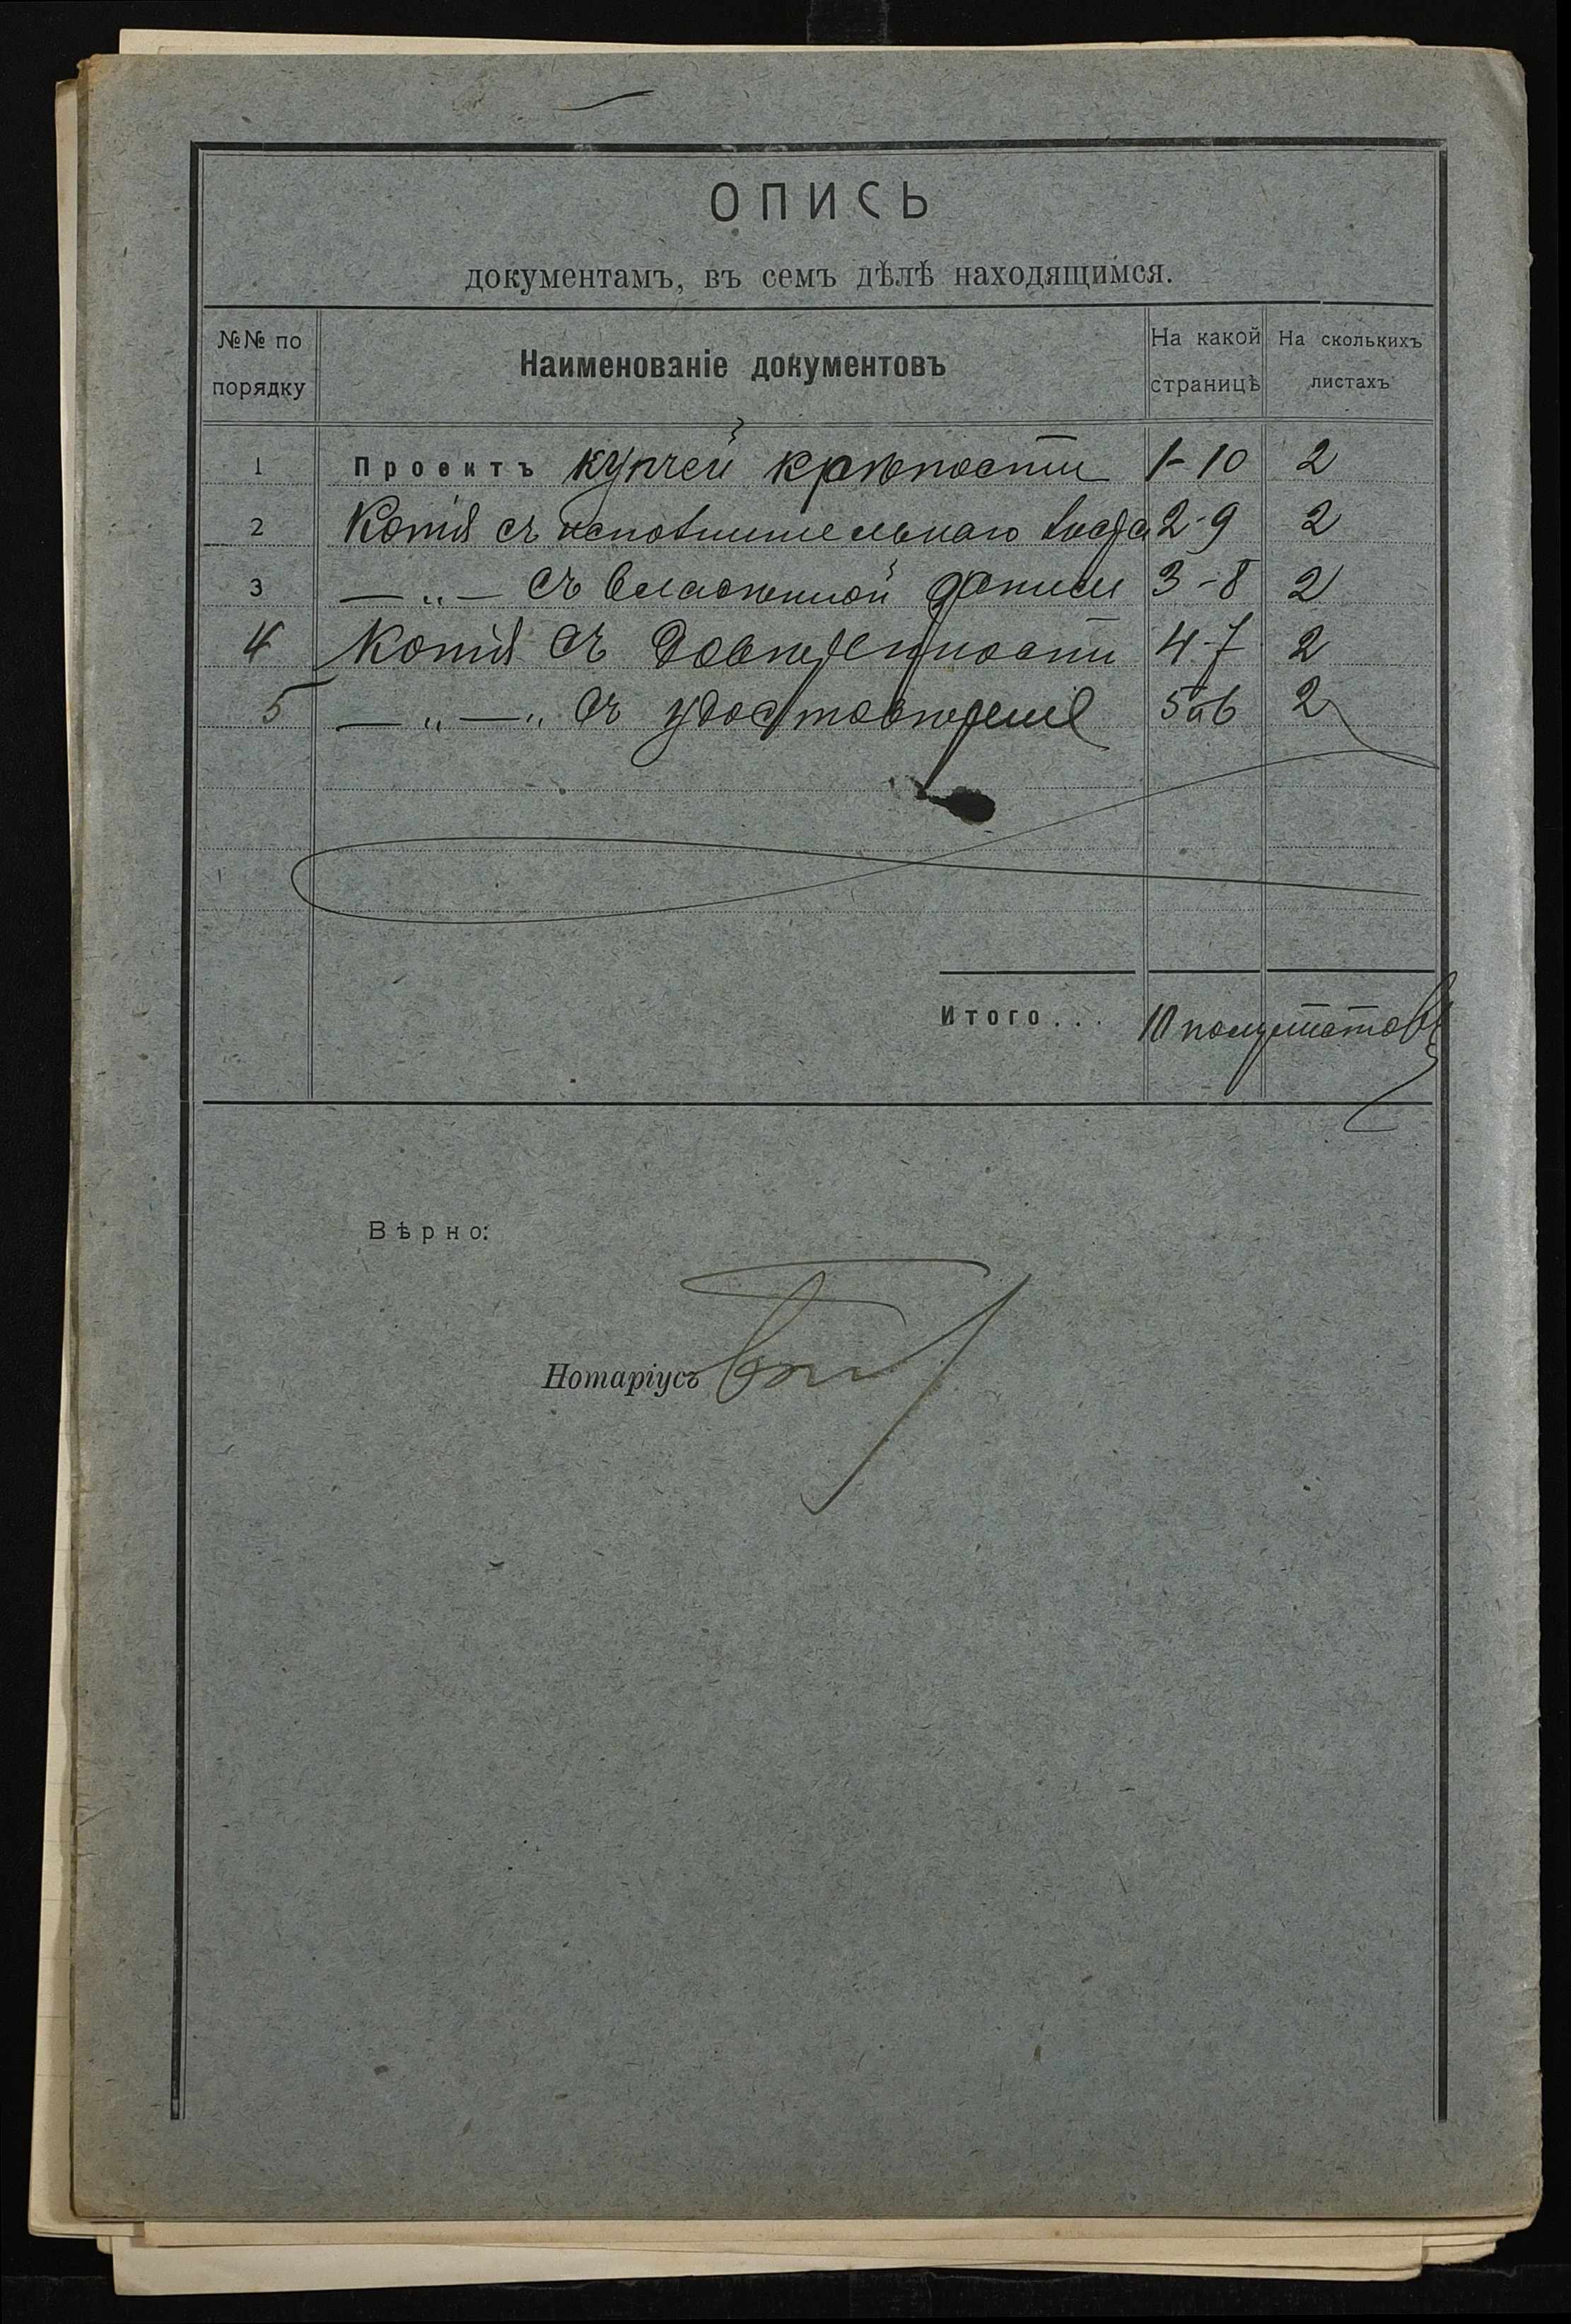 ОПИСЬ
документамъ, въ семъ дѣлѣ находящимся.
№№ по порядку
Наименованіе документовъ
На какой страницѣ
На сколькихъ листахъ
1 Проектъ купчей крѣпости 1-10 2
2 Копія съ исполнительнаго 2-9 2
3 —„— съ записи 3-8 2
4 Копія съ Довѣренности 4-7 2
5 —„—„ съ удостовѣренія 5 и 6 2
Итого... 10 полулистовъ
Вѣрно:
Нотаріусъ